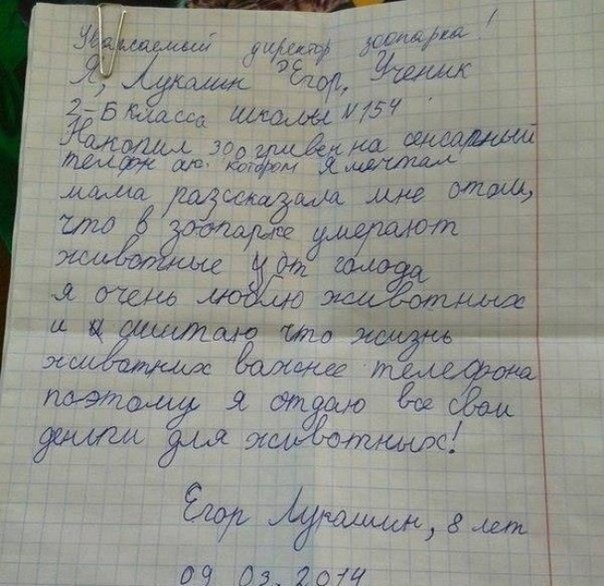 Уважаемый директор зоопарка!
Я, Лукашин Егор, Ученик
2-Б класса школы №154
Накопил 300 гривен на сенсарный
телфон о котором Я мечтал
мама разссказала мне отом,
что в зоопарке умерают
животные от голода
я очень люблю животных
и сиштаю что жизнь
животних важнее телефона
поэтому я отдаю все свои
деньги для животных!
Егор Лукашин, 8 лет
09 03. 2014